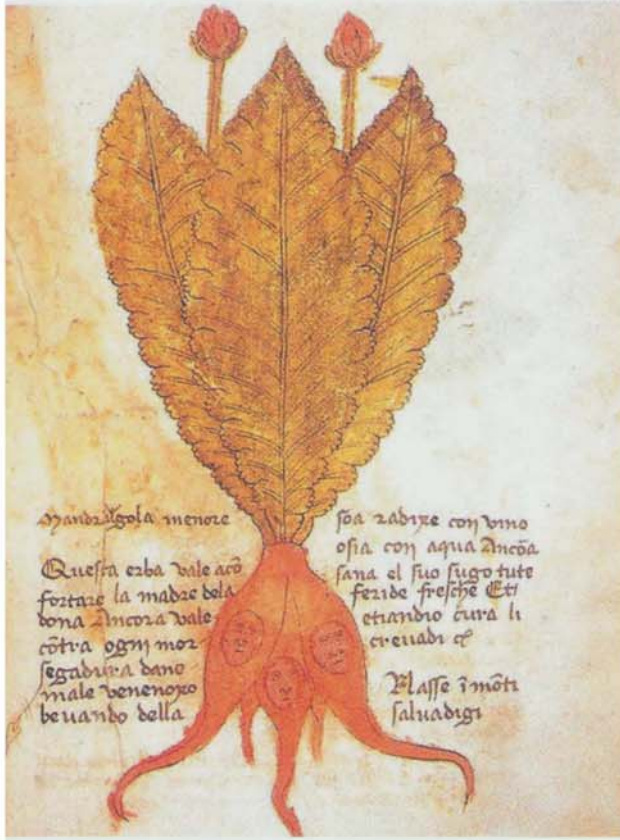 Mandragola menore
Questa erba vale acõ
fortare la madre dela
dona Ancora vale
cõtra ogni mor
segadura dano
male venenoxo
bevando della
soa radixe con vino
osia con aqua Ancõa
sana el suo sugo tute
feride fresche Et
etiandio cura li
crevadi
Nasse ĩ mõti
salvadigi